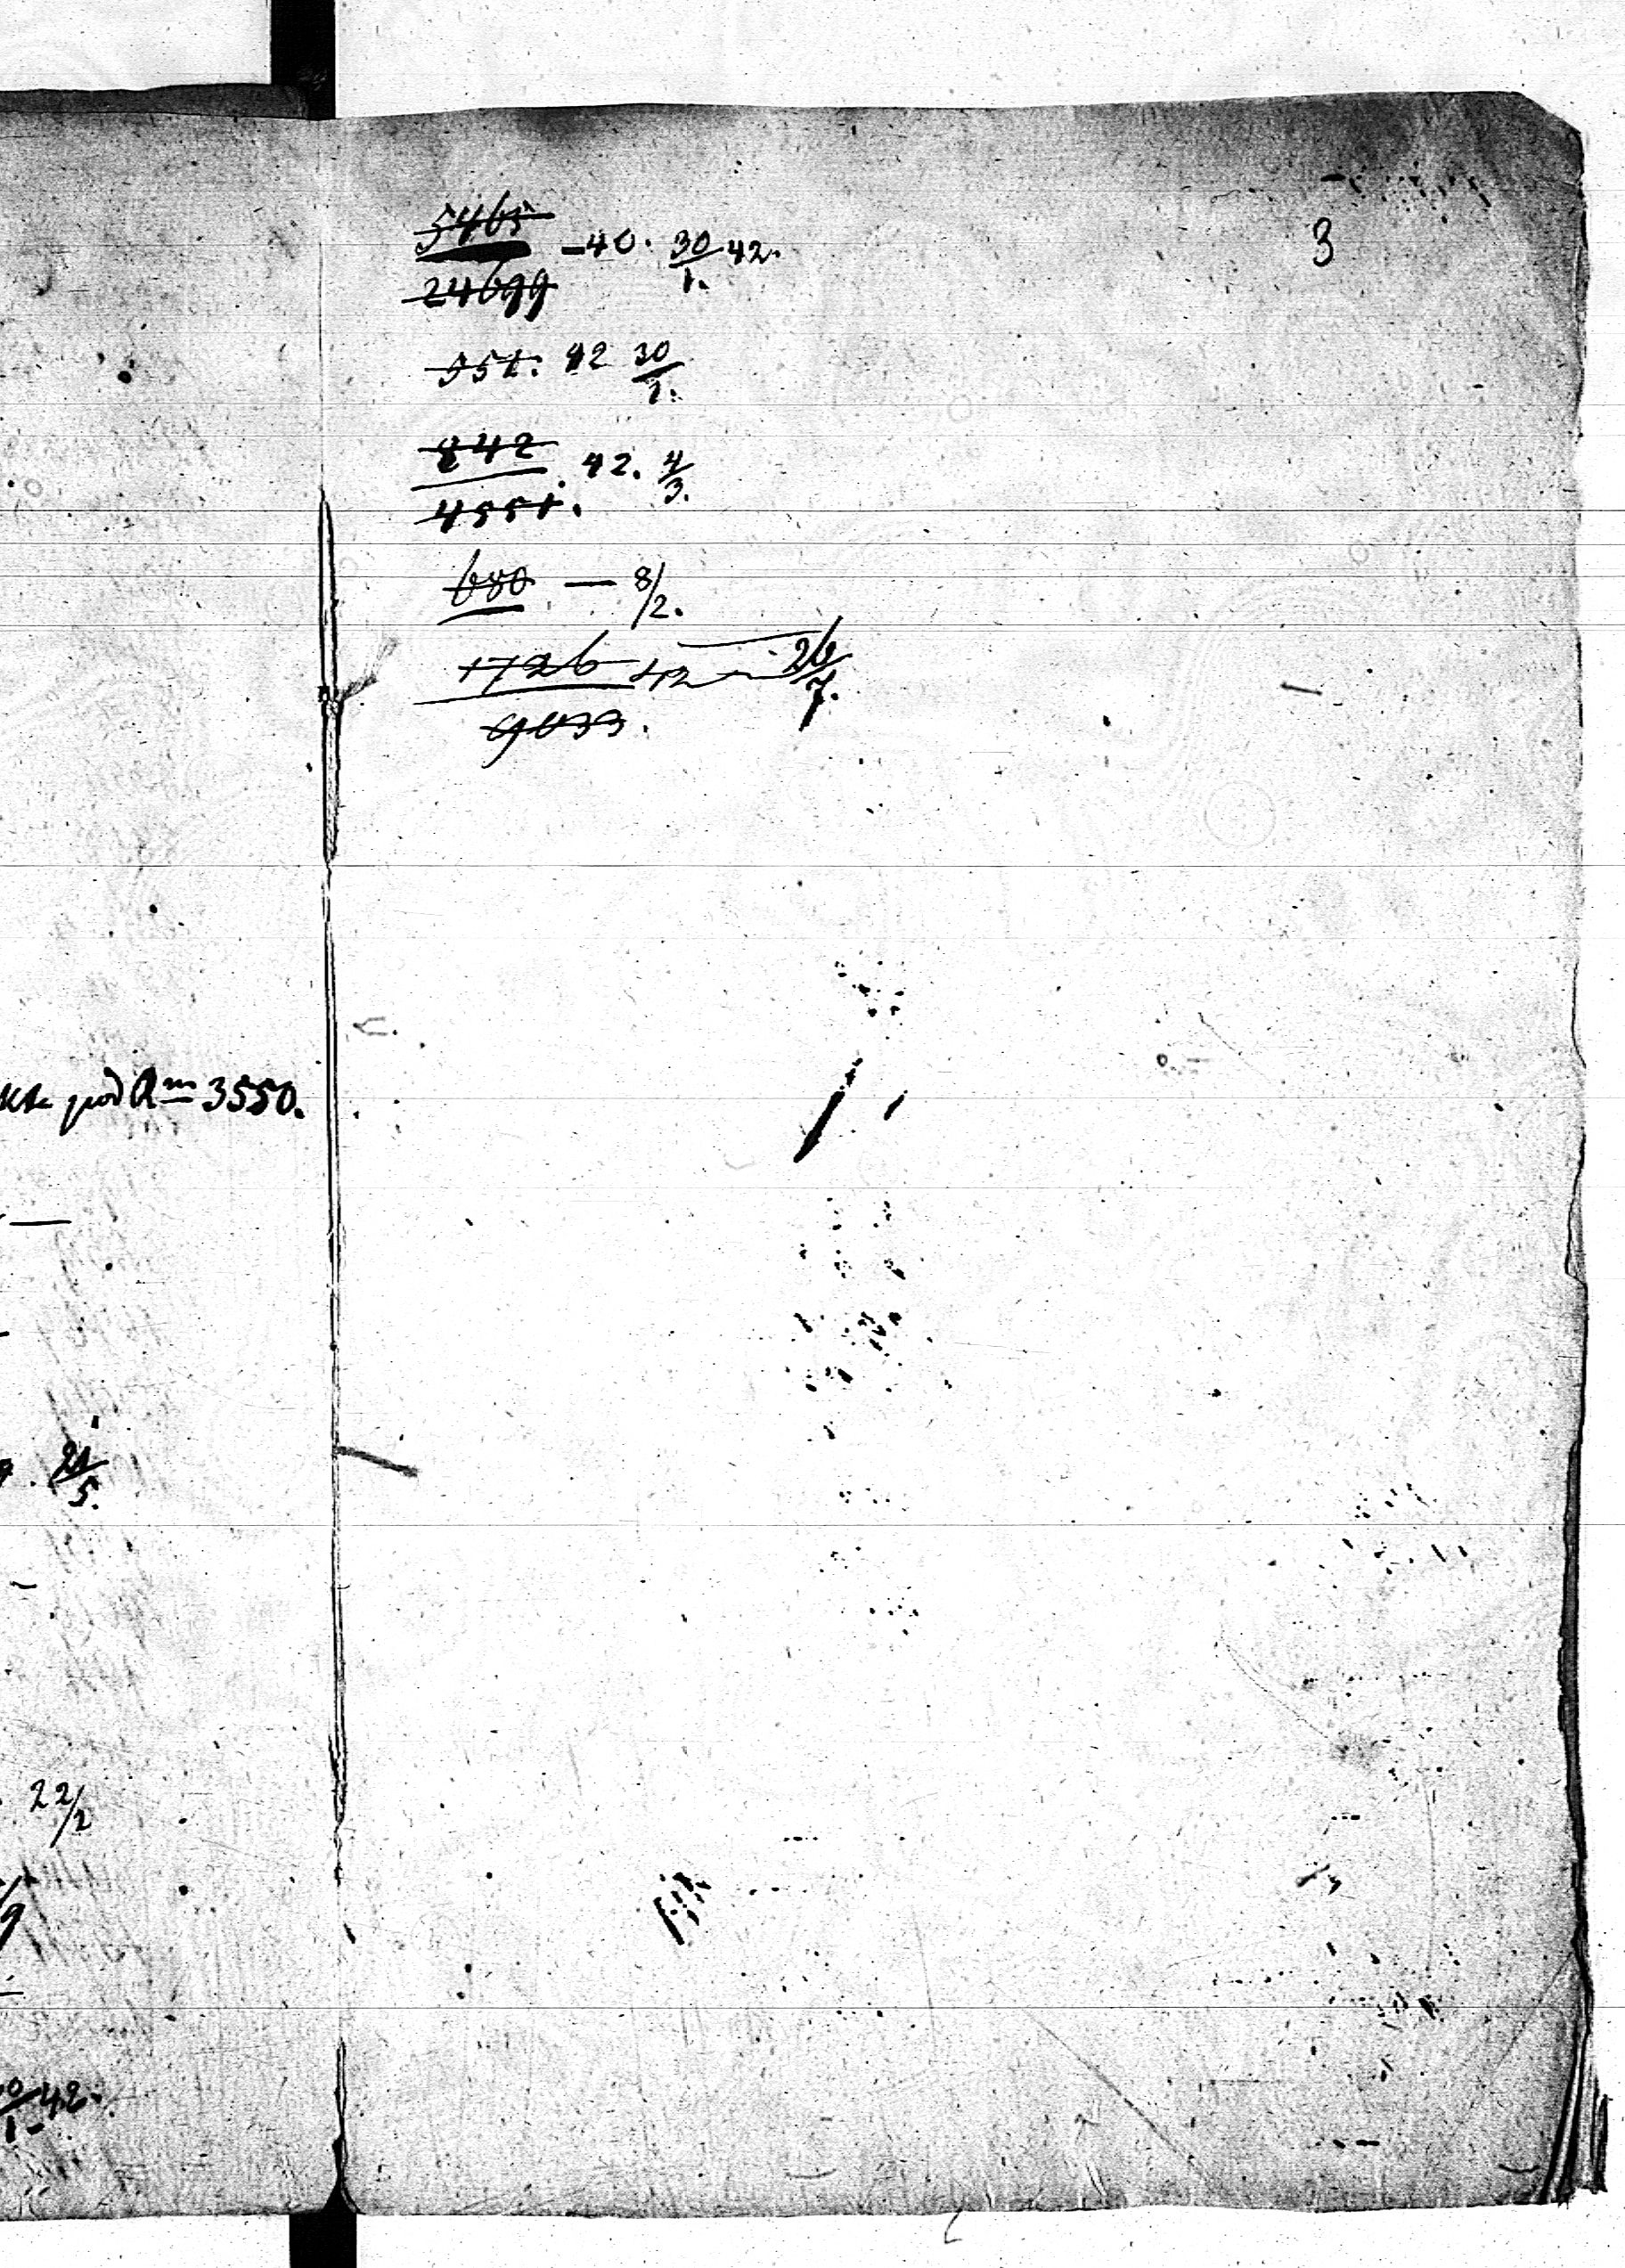 3
5465
24699 - 40. 30/1. 42.
351. 42 30/1.
842
4551. 42. 4/3.
680 — 8/2.
1726 42 — 26/7.
9033.
pod Nm 3550.
21/5.
22/2
42.